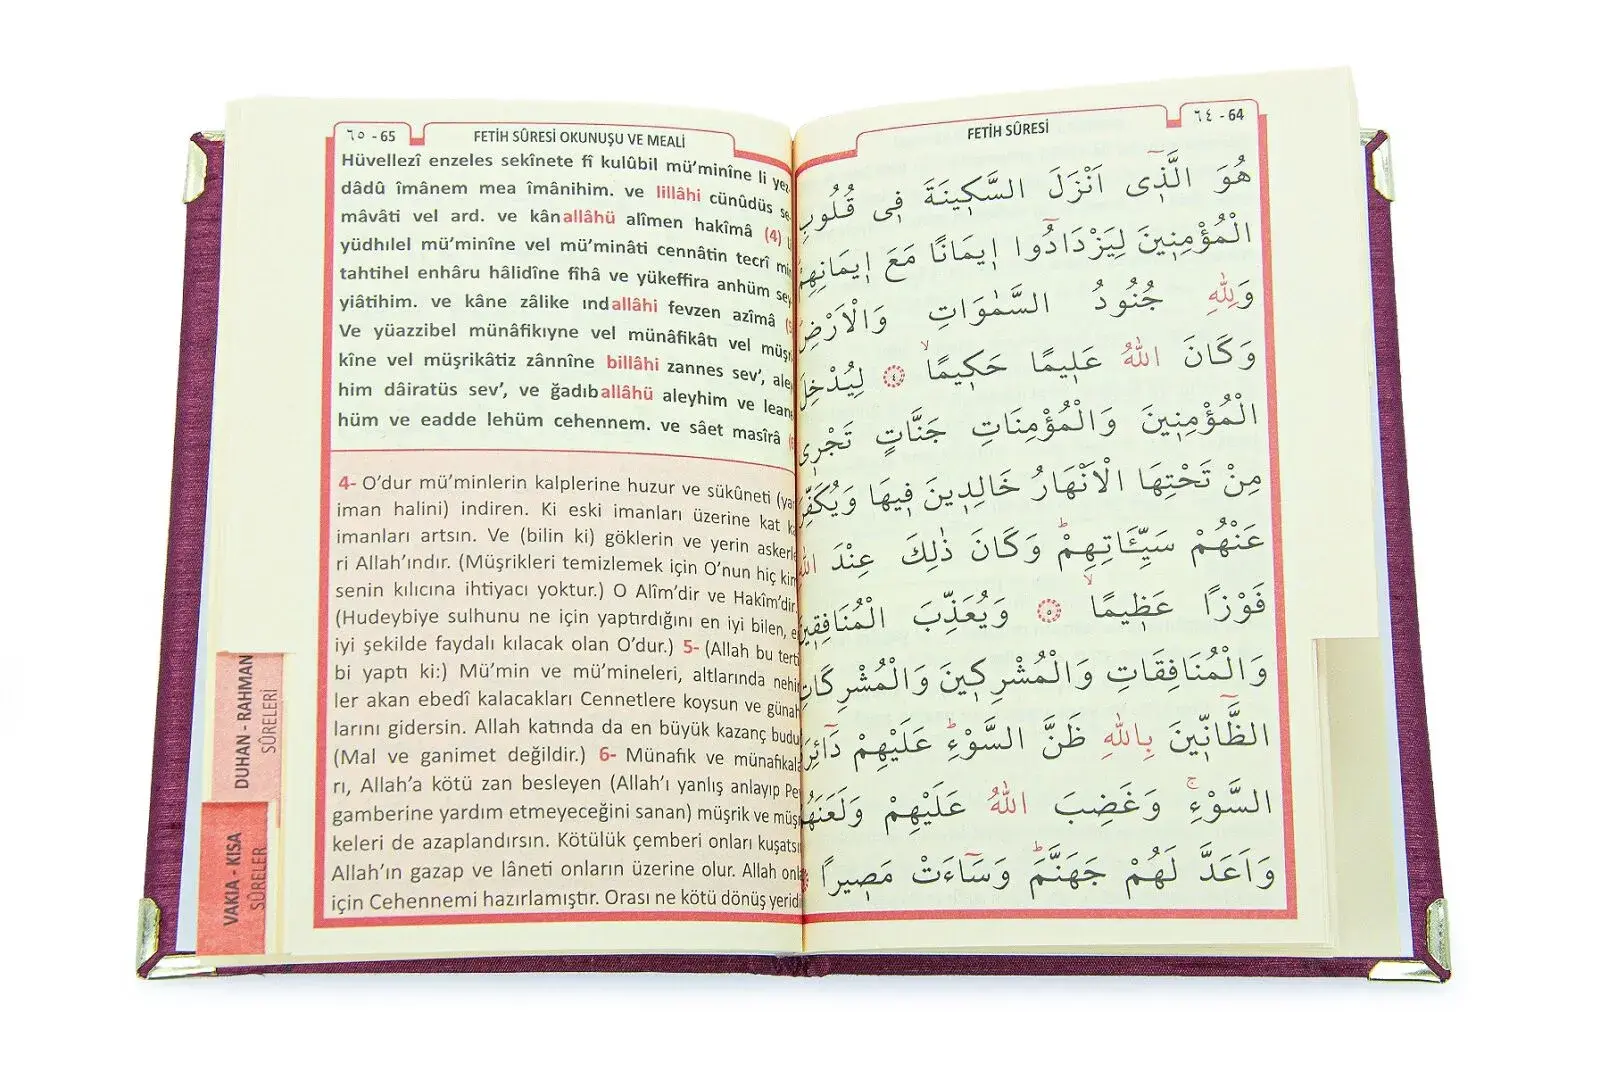 ٦٥ - 65
FETİH SÛRESİ OKUNUŞU VE MEALİ
Hüvellezî enzeles sekînete fî kulûbil mü’minîne li yez-
dâdû îmânem mea îmânihim. ve lillâhi cünûdüs se-
mâvâti vel ard. ve kânallâhü alîmen hakîmâ (4)
yüdhılel mü’minîne vel mü’minâti cennâtin tecrî min
tahtihel enhâru hâlidîne fîhâ ve yükeffira anhüm
yiâtihim. ve kâne zâlike ındallâhi fevzen azîmâ
Ve yüazzibel münâfikıyne vel münâfikâti vel
kîne vel müşrikâtiz zânnîne billâhi zannes sev’,
him dâiratüs sev’, ve ğadıballâhü aleyhim ve
hüm ve eadde lehüm cehennem. ve sâet masîrâ
4- O’dur mü’minlerin kalplerine huzur ve sükûneti
iman halini) indiren. Ki eski imanları üzerine kat
imanları artsın. Ve (bilin ki) göklerin ve yerin
ri Allah’ındır. (Müşrikleri temizlemek için O’nun hiç kim
senin kılıcına ihtiyacı yoktur.) O Alîm’dir ve Hakîm’dir.
(Hudeybiye sulhunu ne için yaptırdığını en iyi bilen,
iyi şekilde faydalı kılacak olan O’dur.) 5- (Allah bu
bi yaptı ki:) Mü’min ve mü’mineleri, altlarında
ler akan ebedî kalacakları Cennetlere koysun ve günah
larını gidersin. Allah katında da en büyük kazanç
(Mal ve ganimet değildir.) 6- Münafık ve
rı, Allah’a kötü zan besleyen (Allah’ı yanlış anlayıp
gamberine yardım etmeyeceğini sanan) müşrik ve
keleri de azaplandırsın. Kötülük çemberi onları
Allah’ın gazap ve lâneti onların üzerine olur. Allah
için Cehennemi hazırlamıştır. Orası ne kötü dönüş
DUHAN - RAHMAN
SÛRELERİ
VAKIA - KISA
SÛRELER
FETİH SÛRESİ
٦٤ - 64
هُوَ الَّذ۪ٓي اَنْزَلَ السَّك۪ينَةَ ف۪ي قُلُوبِ
الْمُؤْمِن۪ينَ لِيَزْدَادُٓوا ا۪يمَانًا مَعَ ا۪يمَانِهِمْ
وَلِلّٰهِ جُنُودُ السَّمٰوَاتِ وَالْاَرْضِ
وَكَانَ اللّٰهُ عَل۪يمًا حَك۪يمًاۙ ٤ لِيُدْخِلَ
الْمُؤْمِن۪ينَ وَالْمُؤْمِنَاتِ جَنَّاتٍ تَجْر۪ي
مِنْ تَحْتِهَا الْاَنْهَارُ خَالِد۪ينَ ف۪يهَا وَيُكَفِّرَ
عَنْهُمْ سَيِّـَٔاتِهِمْۜ وَكَانَ ذٰلِكَ عِنْدَ اللّٰهِ
فَوْزًا عَظ۪يمًاۙ ٥ وَيُعَذِّبَ الْمُنَافِق۪ينَ
وَالْمُنَافِقَاتِ وَالْمُشْرِك۪ينَ وَالْمُشْرِكَاتِ
الظَّٓانّ۪ينَ بِاللّٰهِ ظَنَّ السَّوْءِۜ عَلَيْهِمْ دَٓائِرَةُ
السَّوْءِۚ وَغَضِبَ اللّٰهُ عَلَيْهِمْ وَلَعَنَهُمْ
وَاَعَدَّ لَهُمْ جَهَنَّمَۜ وَسَٓاءَتْ مَص۪يرًا